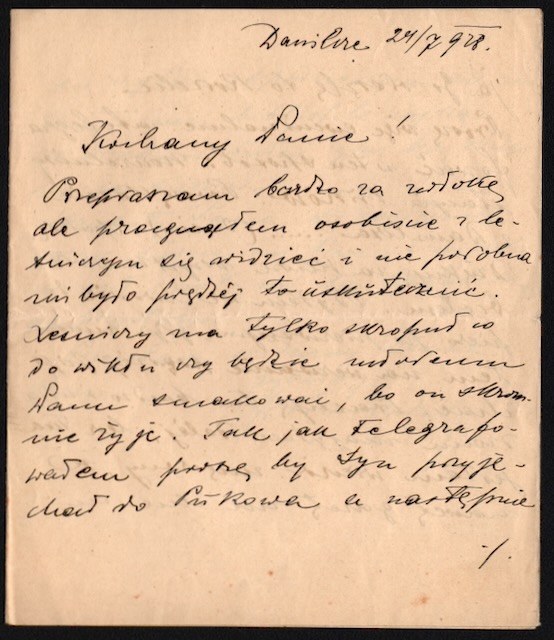 Danilcze 24/7 928.
Kochany Panie!
Przepraszam bardzo za zwłokę,
ale pragnąłem osobiście z le-
śniczym się widzieć i nie podobna
mi było prędzej to uskutecznić.
Leśniczy ma tylko skromną
do wiktu czy będzie młodemu
Panu smakować, bo on skrom-
nie żyje. Tak jak telegrafo-
wałem proszę by Syn przyje-
chał do Pukowa a następnie
./.